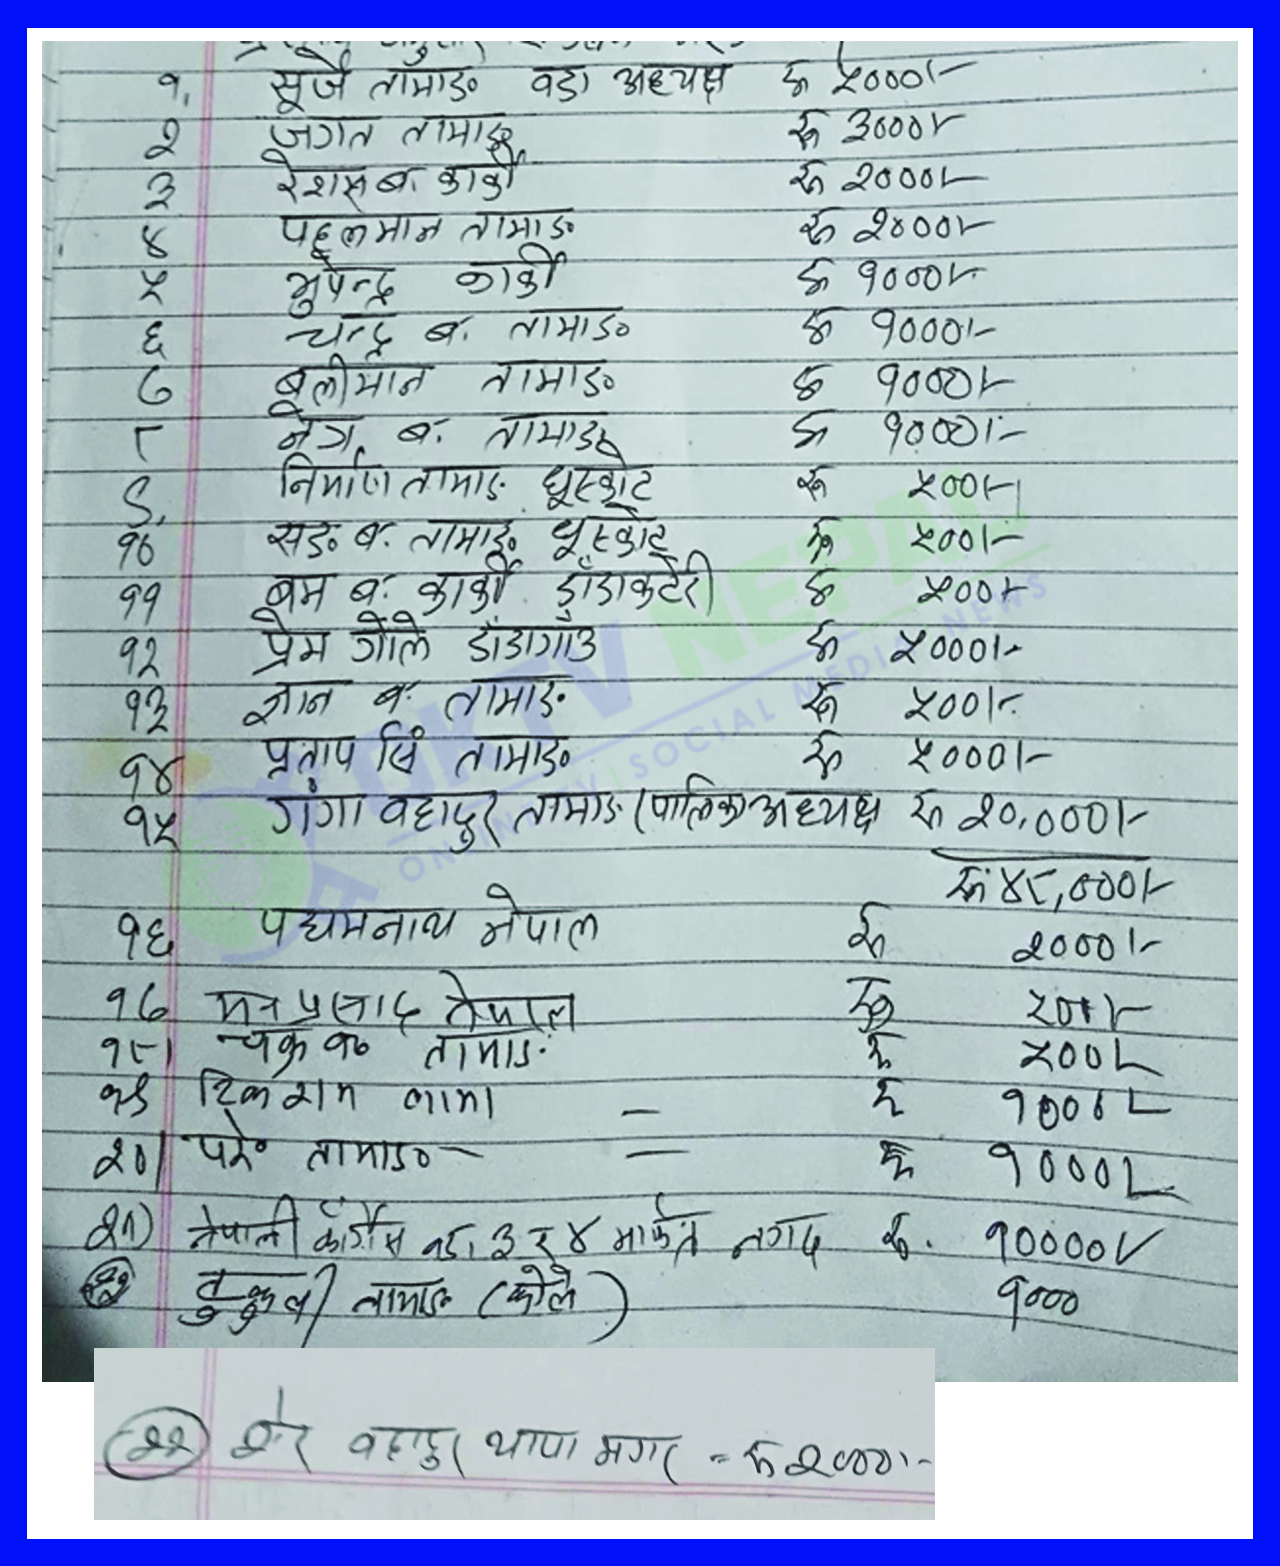 १. सूर्जे तामाङ वडा अध्यक्ष रू ५०००।-
२ जगत तामाङ रू ३०००।-
३ रेशम ब. कार्की रू २०००।-
४ पहलमान तामाङ रू २०००।-
५ भुपेन्द्र कार्की रू १०००।-
६ चन्द्र ब. तामाङ रू १०००।-
७ बुलीमान तामाङ रू १०००।-
८ ब. तामाङ रू १०००।-
९. निर्माण तामाङ धूस्कोट रू ५००।-
१० सङ ब. तामाङ धूस्कोट रू ५००।-
११ बम ब. कार्की डाँडाकटेरी रू ५००।-
१२ प्रेम गोले डाँडागाँउ रू ५०००।-
१३ ज्ञान ब. तामाङ रू ५००।-
१४ प्रताप सिं तामाङ रू ५०००।-
१५ गंगा वहादुर तामाङ (पालिका अध्यक्ष रू २०,०००।-
रू ४८,०००।-
१६ पद्यमनाथ नेपाल रू २०००।-
१७ प्रसाद नेपाल रू ५००।-
१८। चक्र ब० तामाङ रू ५००।-
१९ टिकाराम लामा — रू १०००।-
२०। तामाङ — — रू १०००।-
२१) नेपाली काँग्रेस वडा ३ र ४ मार्फत नगद रू. १००००।-
२२ तामाङ (कोले) १०००
२२ शेर वहादुर थापा मगर = रू २०००।-
OKTV NEPAL
ONLINE TV | SOCIAL MEDIA NEWS